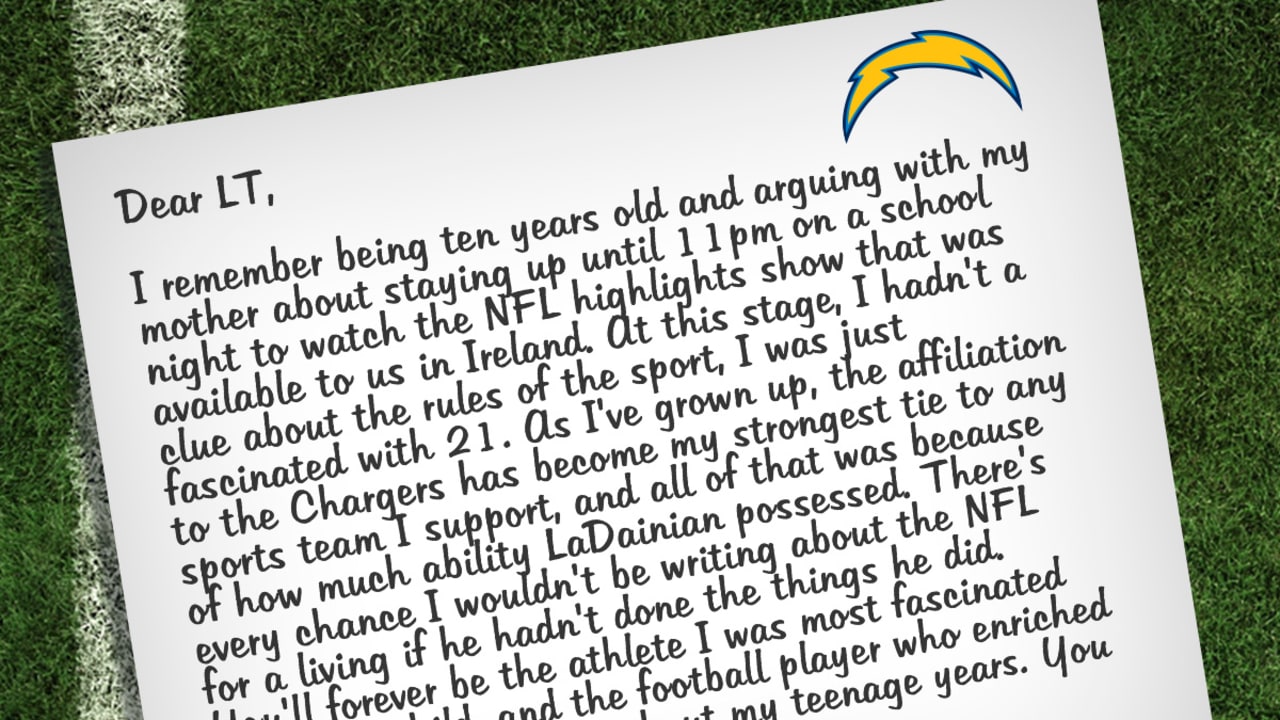 Dear LT,
I remember being ten years old and arguing with my
mother about staying up until 11pm on a school
night to watch the NFL highlights show that was
available to us in Ireland. At this stage, I hadn't a
clue about the rules of the sport, I was just
fascinated with 21. As I've grown up, the affiliation
to the Chargers has become my strongest tie to any
sports team I support, and all of that was because
of how much ability LaDainian possessed. There's
every chance I wouldn't be writing about the NFL
for a living if he hadn't done the things he did.
You'll forever be the athlete I was most fascinated
and the football player who enriched
my teenage years. You